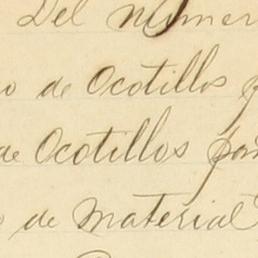 Del númer
o de Ocotillos p
de Ocotillos par
o de material